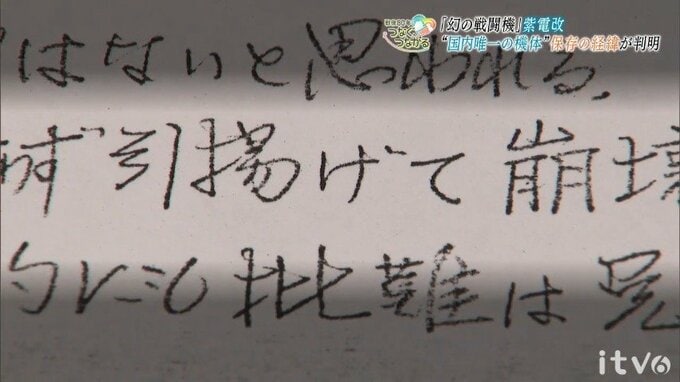 戦後80年
つなぐ
つなげる
「幻の戦闘機」紫電改
“国内唯一の機体”保存の経緯が判明
はないと思われる。
引揚げて崩壊
的にも批難は免
itv6